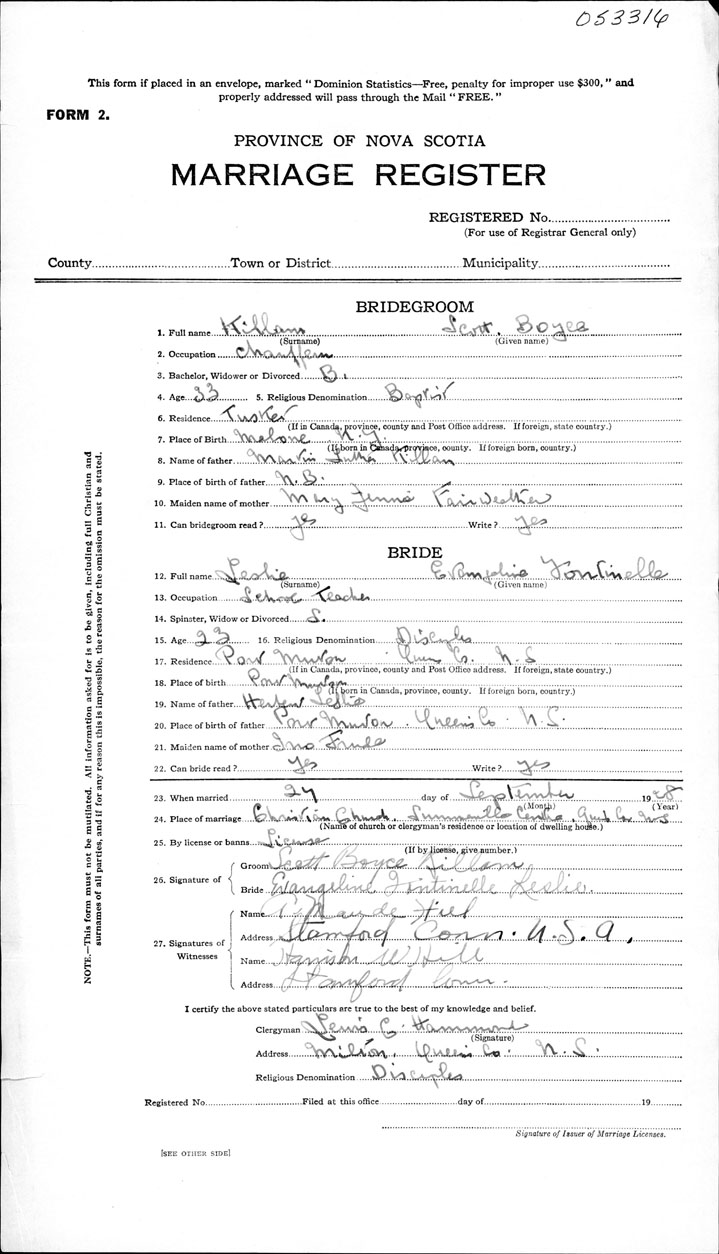 053316
This form if placed in an envelope, marked "Dominion Statistics—Free, penalty for improper use $300," and
properly addressed will pass through the Mail "FREE."
FORM 2.
PROVINCE OF NOVA SCOTIA
MARRIAGE REGISTER
REGISTERED No.
(For use of Registrar General only)
County Town or District Municipality
BRIDEGROOM
1. Full name Killam Scott Boyce
(Surname) (Given name)
2. Occupation
3. Bachelor, Widower or Divorced B.
4. Age 33 5. Religious Denomination Baptist
6. Residence Tusket
(If in Canada, province, county and Post Office address. If foreign, state country.)
7. Place of Birth Malone N.Y.
(If born in Canada, province, county. If foreign born, country.)
8. Name of father Martin Luther Killam
9. Place of birth of father N.B.
10. Maiden name of mother Mary Fairweather
11. Can bridegroom read? yes Write? yes
BRIDE
12. Full name Leslie Evangeline Fontinelle
(Surname) (Given name)
13. Occupation School Teacher
14. Spinster, Widow or Divorced S.
15. Age 23 16. Religious Denomination Disciples
17. Residence Port Mouton Co. N.S
(If in Canada, province, county and Post Office address. If foreign, state country.)
18. Place of birth Port Mouton
(If born in Canada, province, county. If foreign born, country.)
19. Name of father Leslie
20. Place of birth of father Port Mouton. Queens Co. N.S.
21. Maiden name of mother
22. Can bride read? yes Write? yes
23. When married 27 day of September 1928
(Month) (Year)
24. Place of marriage Christian Church, Summerville Centre, Co. N.S
(Name of church or clergyman's residence or location of dwelling house.)
25. By license or banns License
(If by license, give number.)
26. Signature of
Groom Scott Boyce Killam
Bride Evangeline Fontinelle Leslie.
27. Signatures of Witnesses
Name Maude Hill
Address Stamford Conn. U.S.A,
Name W Hill
Address Stamford Conn.
I certify the above stated particulars are true to the best of my knowledge and belief.
Clergyman Lewis C. Hammond
(Signature)
Address Milton, Queens Co. N.S.
Religious Denomination Disciples
Registered No. Filed at this office day of 19
Signature of Issuer of Marriage Licenses.
[SEE OTHER SIDE]
NOTE.—This form must not be mutilated. All information asked for is to be given, including full Christian and
surnames of all parties, and if for any reason this is impossible, the reason for the omission must be stated.